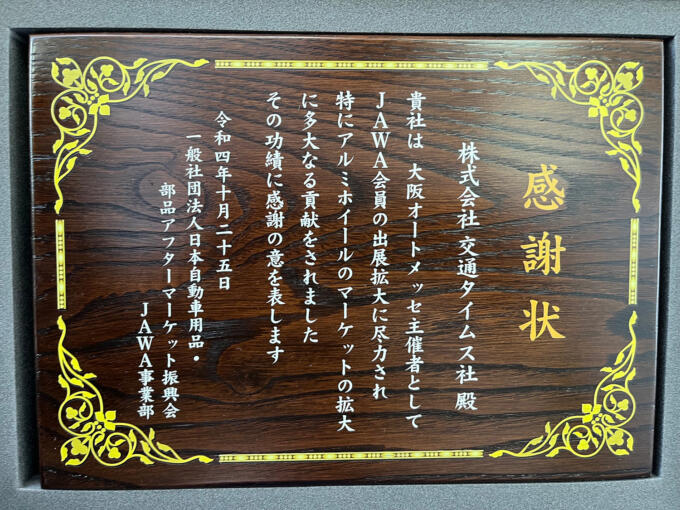 感謝状
株式会社 交通タイムス社 殿
貴社は 大阪オートメッセ主催者として
JAWA会員の出展拡大に尽力され
特にアルミホイールのマーケットの拡大
に多大なる貢献をされました
その功績に感謝の意を表します
令和四年十月二十五日
一般社団法人日本自動車用品・
部品アフターマーケット振興会
JAWA事業部